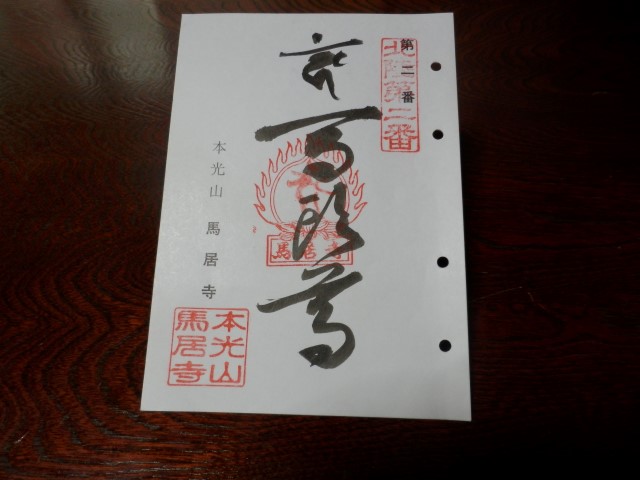 北陸第二番
第二番
馬頭尊
馬居寺
本光山 馬居寺
本光山
馬居寺